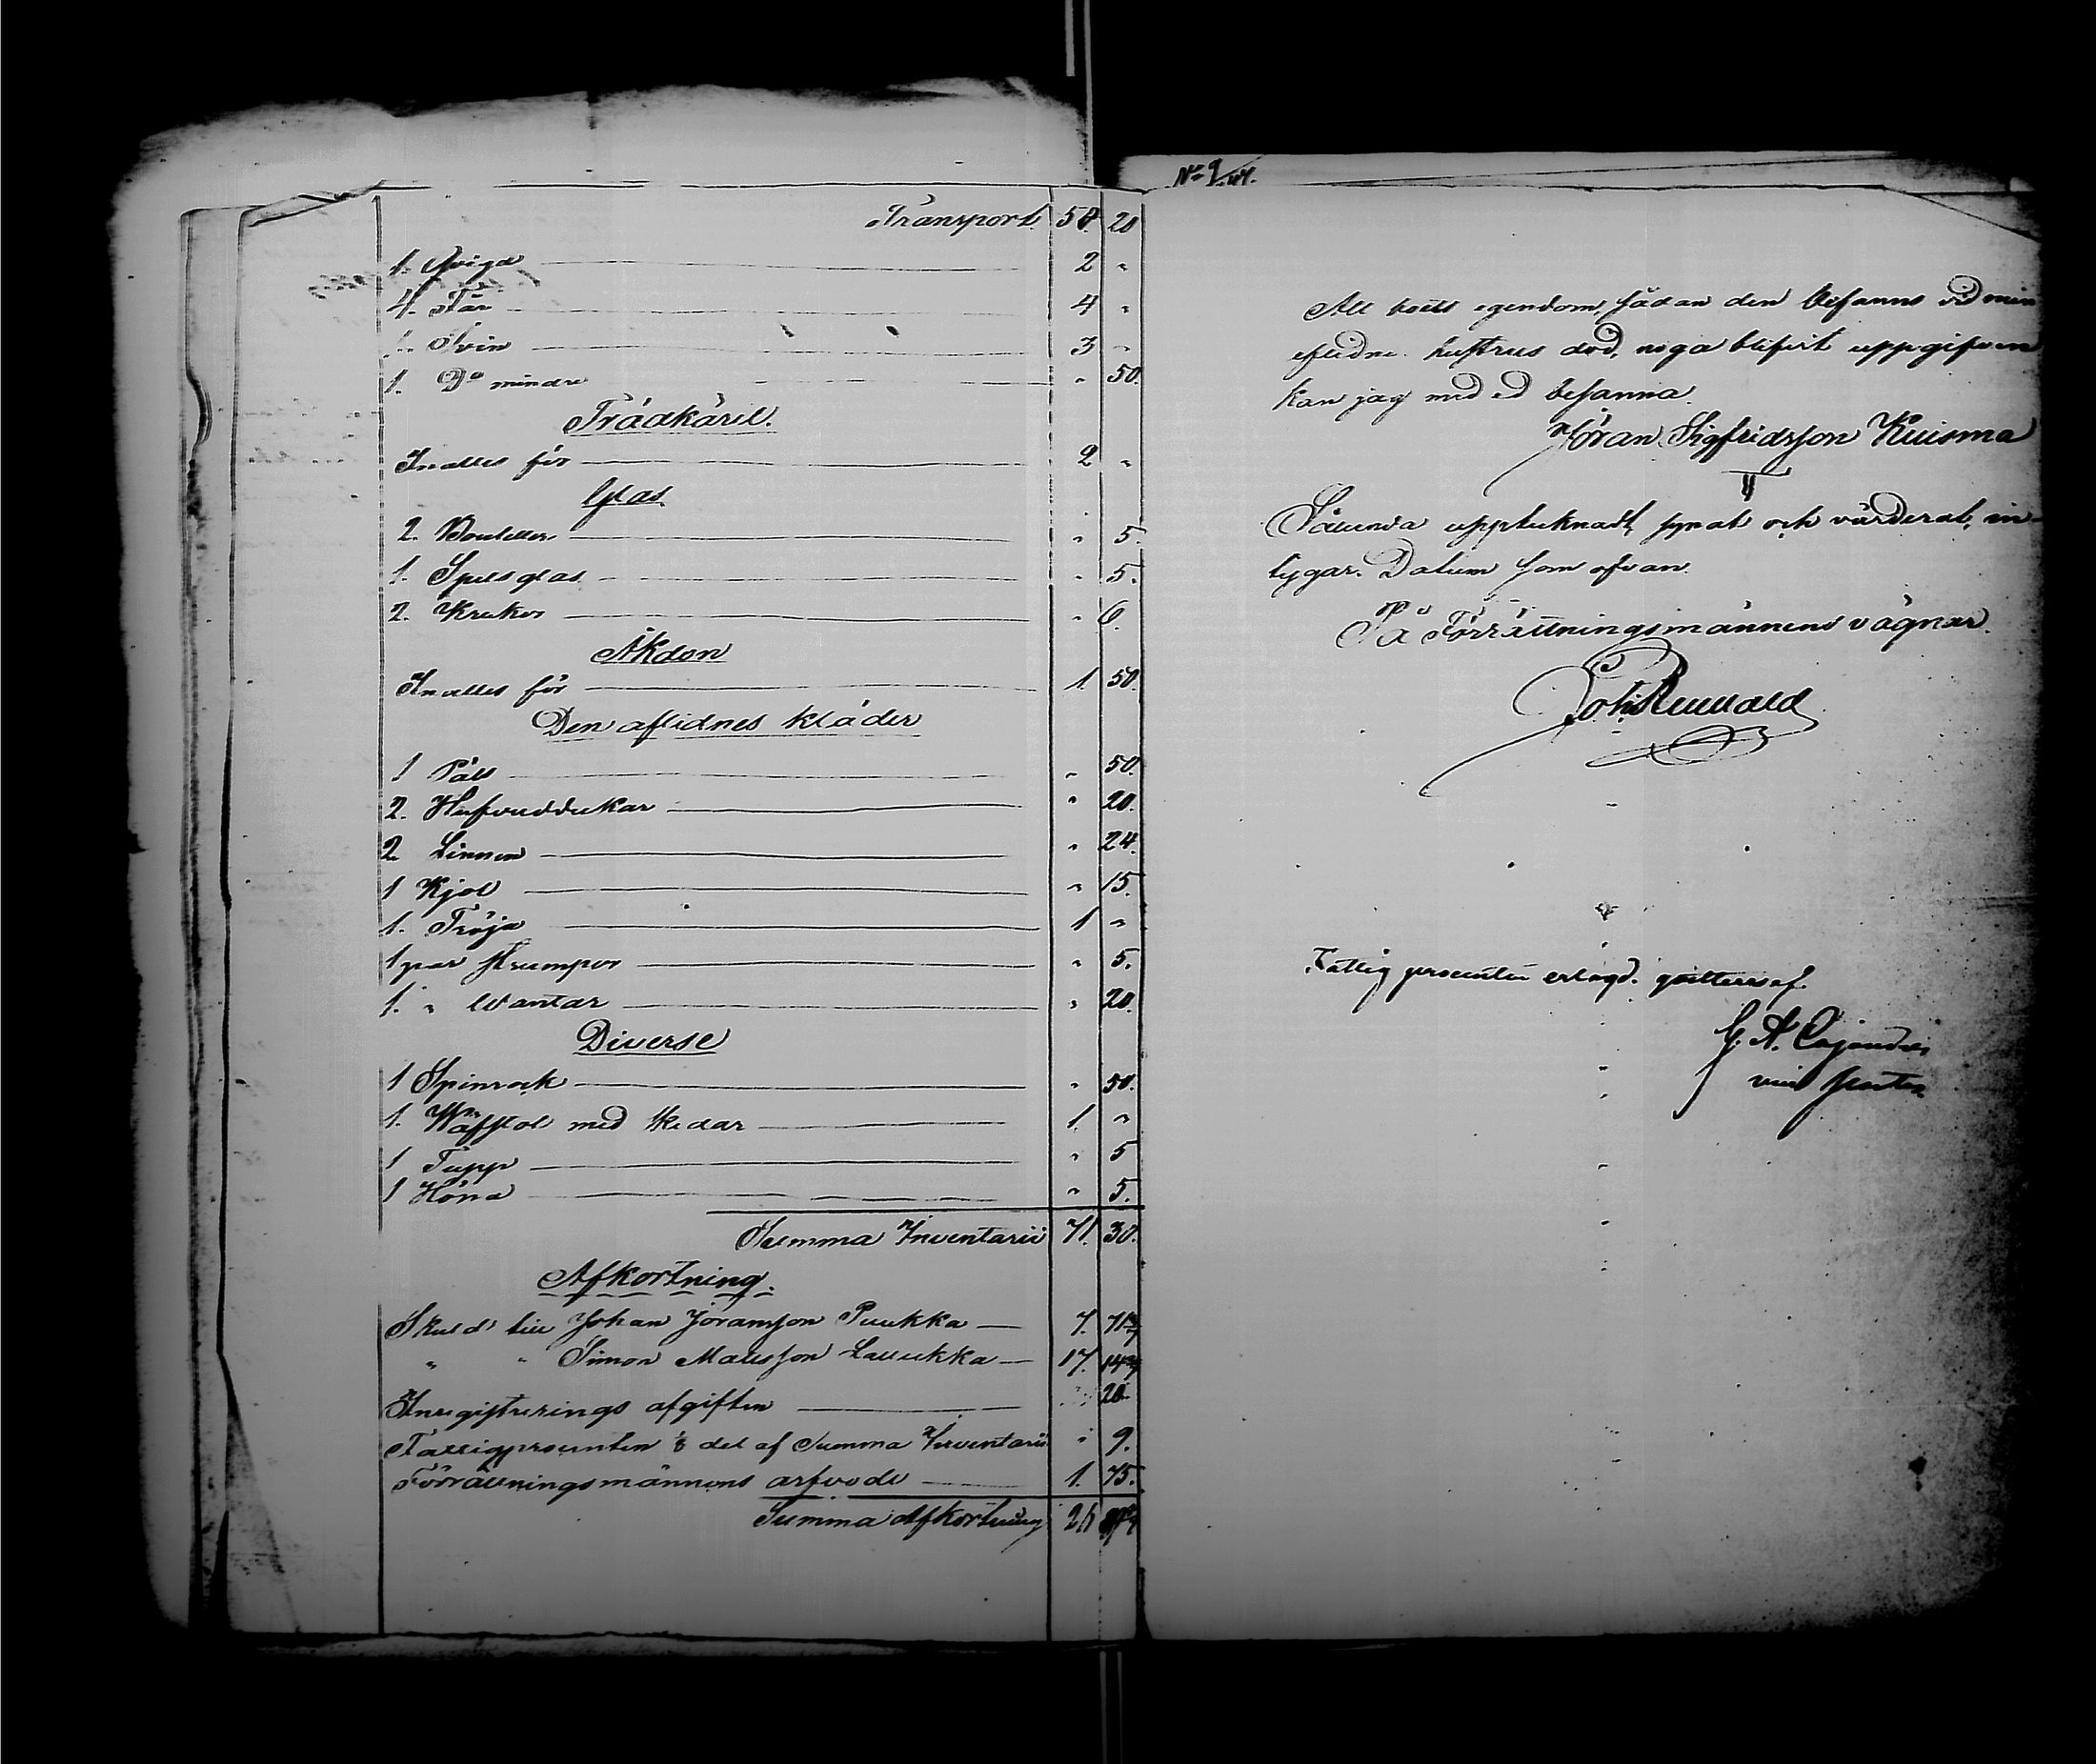 Transport. 50. 20
1. Qviga 2 "
4. Får 4 "
1. Svin 3 "
1. Do mindre " 50.
Trädkäril.
Inalles för 2 "
Glas.
2. Bouteller " 5.
1. Spetsglas " 5.
2. Krukor " 6.
Åkdon
Inalles för 1. 50.
Den aflidnes kläder
1 Päls " 50.
2. Hufvuddukar " 20.
2. Linnen " 24.
1 Kjol " 15.
1. Tröja 1 "
1 par strumpor " 5.
1. " Wantar " 20.
Diverse
1 Spinrock " 50.
1. Wäfstol med skedar 1. "
1 Tupp " 5
1 Höna " 5.
Summa Inventarii 71. 30.
Afkortning.
Skuld till Johan Jöransson Puukka 7.
" " Simon Matsson Laukka 17.
Inregistrerings afgiften 20.
Fattigprocenten 1/8 del af Summa Inventarii " 9.
Förrättningsmännens arfvode 1. 75.
Summa Afkortning
No 9
Att boets egendom, sådan den befanns vid min
aflidne hustrus död, noga blifvit uppgifven
kan jag med ed besanna.
Jöran Sigfridsson Kuisma
Sålunda upptecknadt, synat och värderat, in-
tygar. Datum som ofvan.
På Förrättningsmännens vägnar.
Joh. Renvald
Fattig procenten erlagd. qvitteras af.
G. A. Cajander